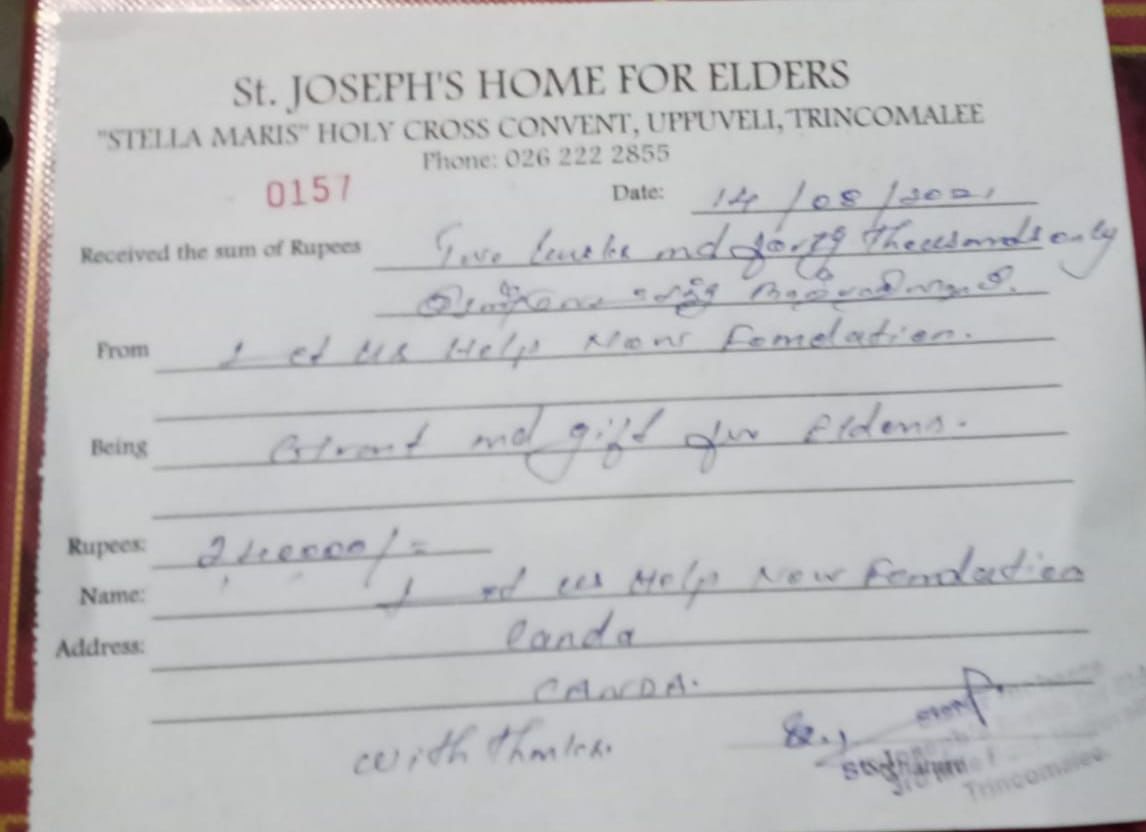 St. JOSEPH'S HOME FOR ELDERS
"STELLA MARIS" HOLY CROSS CONVENT, UPPUVELI, TRINCOMALEE
Phone: 026 222 2855
0157 Date: 14/08/2021
Received the sum of Rupees Two lauks and forty Thousands only
From Let us Help Now Fomdation.
Being Grant and gift for Elders.
Rupees: 240000/=
Name: Let us Help Now Fomdation
Address: Canda
CANADA.
with thanks.
Sr.
Trincomalee.